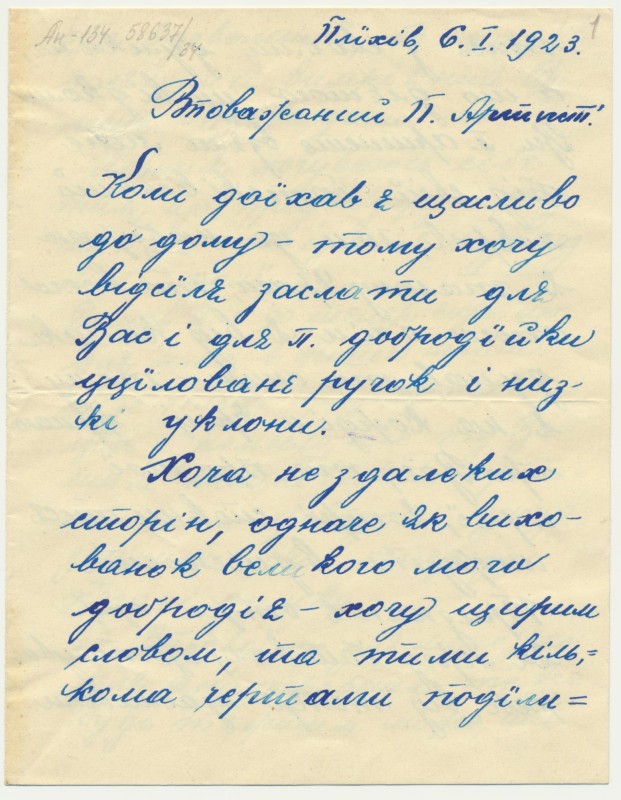 Ан-134 58637/34
1
Пліхів, 6. I. 1923.
Вповажаний П. Артист!
Коли доїхав я щасливо
до дому – тому хочу
відсіля заслати для
Вас і для п. добродійки
уцілованя ручок і низ-
кі уклони.
Хоча не здалеких
сторін, одначе як вихо-
ванок великого мого
добродія – хочу щирим
словом, та тими кіль-
кома чертами поділи=